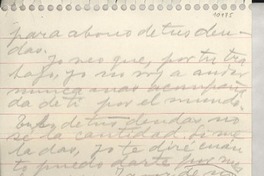 10135
para abono de tus deu-
das.
Yo veo que, por tu tra
bajo, yo no voy a andar
nunca mas acompaña
da de ti por el mundo.
de tus deudas, no
se la cantidad. Si me
la das, yo te diré cuán
to puedo darte por mes